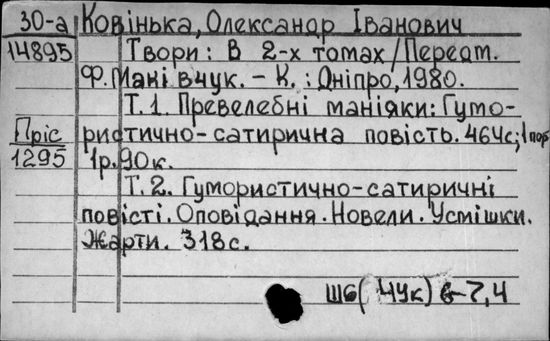 30-а Ковінька, Олександр Іванович
14895 Твори: В 2-х томах/Передм.
Ф. Маківчук. – К.: Дніпро, 1980.
Т. 1. Превелебні маніяки: Гумо-
Пріс ристично-сатирична повість. 464с; 1 пор
1295 1р.90к.
Т. 2. Гумористично-сатиричні
повісті. Оповідання. Новели. Усмішки.
Жарти. 318с.
Ш6( 4Ук)6-7,4